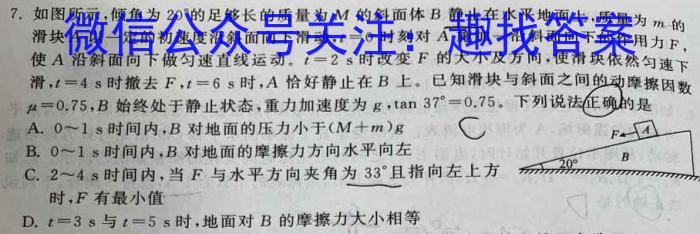 7. 如图所示,倾角为20°的足够长的质量为M的斜面体B静止在水平地面上,质量为m的
滑块 初速度沿斜面 时刻对A 作用力F,
微信公众号关注:趣找答案
使A沿斜面向下做匀速直线运动。t=2 s时改变F的大小及方向,使滑块依然匀速下
滑,t=4 s时撤去F,t=6 s时,A恰好静止在B上。已知滑块与斜面之间的动摩擦因数
μ=0.75,B始终处于静止状态,重力加速度为g,tan 37°=0.75。下列说法正确的是
A. 0~1 s时间内,B对地面的压力小于(M+m)g
B. 0~1 s时间内,B对地面的摩擦力方向水平向左
C. 2~4 s时间内,当F与水平方向夹角为33°且指向左上方
时,F有最小值
D. t=3 s与t=5 s时,地面对B的摩擦力大小相等
C
F
A
20°
B